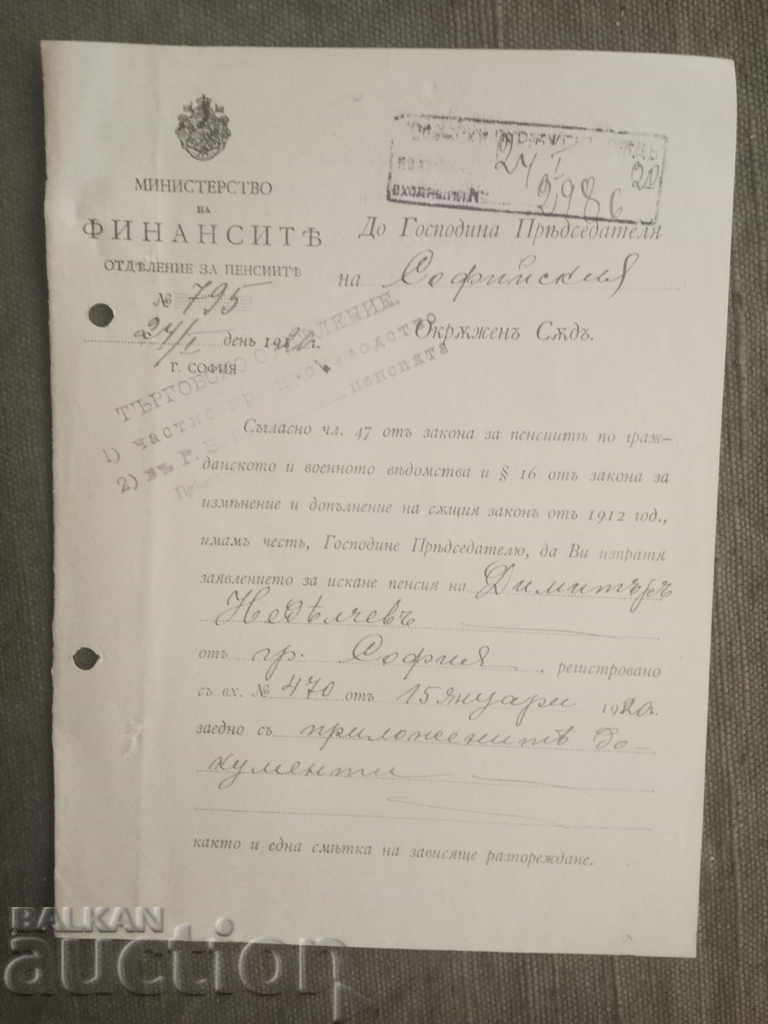 МИНИСТЕРСТВО
НА
ФИНАНСИТѢ
ОТДѢЛЕНИЕ ЗА ПЕНСИИТѢ
№ 795
24/I день 1920 г.
Г. СОФИЯ
24/I 20
ВХОДЯЩЪ № 2986
До Господина Прѣдседателя
на Софийския
Окрѫженъ Сѫдъ.
ТЪРГОВСКО ОТДѢЛЕНИЕ.
1) частно производство
2) въ Г. пенсията
Съгласно чл. 47 отъ закона за пенсиитѣ по граж-
данското и военното вѣдомства и § 16 отъ закона за
измѣнение и допълнение на сѫщия законъ отъ 1912 год.,
имамъ честь, Господине Прѣдседателю, да Ви изпратя
заявлението за искане пенсия на Димитъръ
Недѣлчевъ
отъ гр. София, регистровано
съ вх. № 470 отъ 15 януари 1920 г.
заедно съ приложенитѣ до-
кументи
както и една смѣтка на зависяще разпореждане.
BALKAN
auction